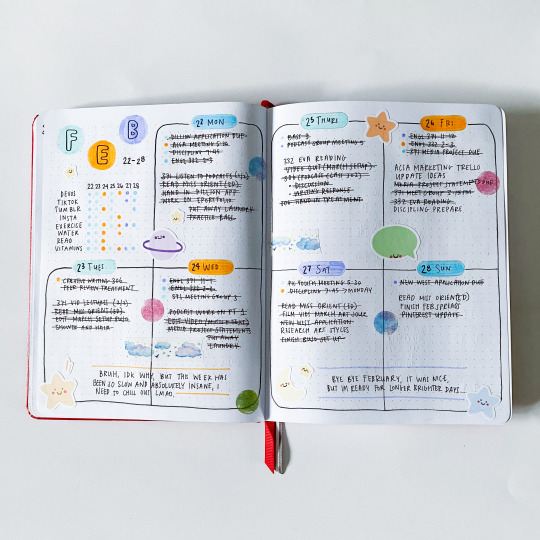 F E B
22-28
22 23 24 25 26 27 28
DEVOS
TIKTOK
TUMBLR
INSTA
EXERCISE
WATER
READ
VITAMINS
22 MON
DILLION APPLICATION DUE
ACSA MEETING 5:15
DISCIPLING 7:45
ENGL 332 2-3
371 LISTEN TO PODCASTS (2/2)
READ MISS ORIENT (50)
HAND IN DILLION APP
WORKOUT
PUT AWAY LAUNDRY
PRACTICE BASS
23 TUES
CREATIVE WRITING 306
PEER REVIEW TREATMENT
371 VID LECTURES (2/2)
READ MISS ORIENT (50)
EDIT MARCH SETUP BUJO
SHOWER AND HAIR
24 WED
ENGL 371 11-1
ENGL 332 2-3
371 MEETING GROUP 3
PODCAST WORK ON PT 1
EDIT VIDEO
MEDIA PROJECT STATEMENTS
PUT AWAY
LAUNDRY
BRUH, IDK WHY, BUT THE WEEK HAS
BEEN SO SLOW AND ABSOLUTELY INSANE, I
NEED TO CHILL OUT LMAO.
25 THURS
BASS 3
PODCAST GROUP MEETING 5
332 EVA READING
VIDEO OUT (MARCH SETUP)
371 (PODCAST CLASS 2X2)
DISCUSSION
WRITING RESPONSE
306 HAND IN TREATMENT
26 FRI
ENGL 371 11-12
ENGL 332 2-3
371 MEDIA PROJECT DUE
ACSA MARKETING TRELLO
UPDATE IDEAS
MEDIA PROJECT STATEMENT
332 EVA READING
DISCIPLING PREPARE
27 SAT
PK YOUTH MEETING 5:30
DISCIPLING 7:45 → MONDAY
READ MISS ORIENT (50)
FILM VIDS MARCH ART JOUR
NEW WEST APPLICATION
RESEARCH ART STYLES
FINISH BUJO SET UP
28 SUN
NEW WEST APPLICATION DUE
READ MISS ORIENT(50)
FINISH FEB SPREADS
PINTEREST UPDATE
BYE BYE FEBRUARY, IT WAS NICE,
BUT IM READY FOR LONGER BRIGHTER DAYS...